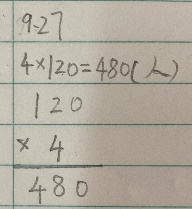 9.27
4×120=480(人)
120
× 4
480